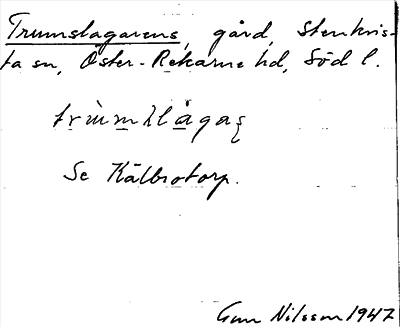 Trumslagarens, gård, Stenkvis-
ta sn, Öster-Rekarne hd, Söd l.
Se Kälbrotorp.
Gun Nilsson 1947